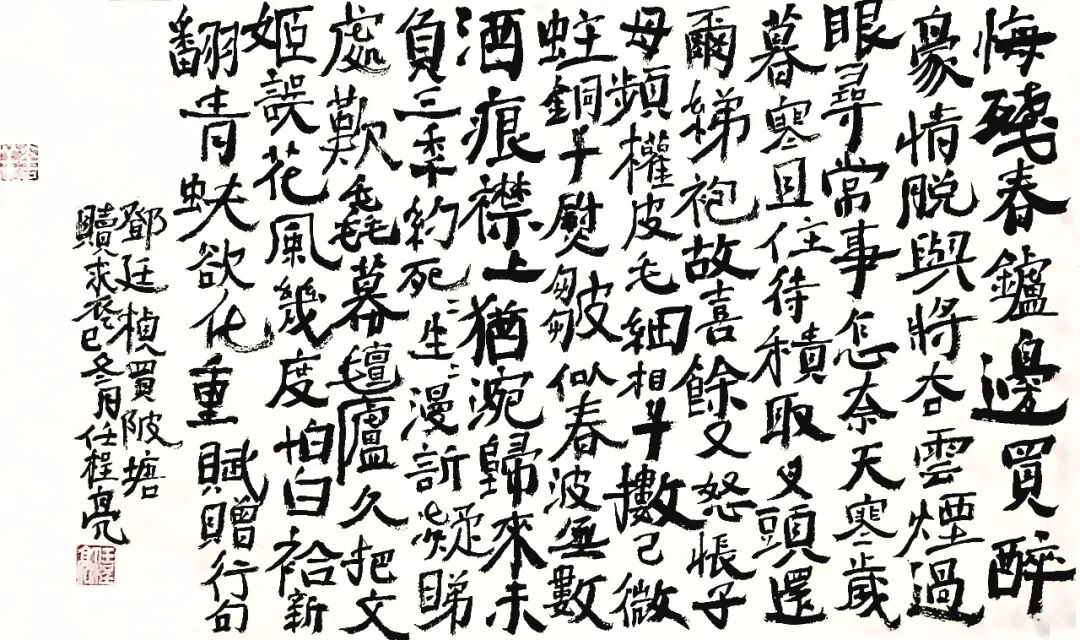 悔殘春鑪邊買醉
豪情脫與將去雲煙過
眼尋常事怎奈天寒歲
暮寒且住待積取叉頭還
爾綈袍故喜餘又怒悵子
母頻權皮毛細相抖擻已微
蛀銅斗熨皺似春波無數
酒痕襟上猶涴歸來未
負三年約死〻生〻漫訴凝睇
處歎毳幕氈廬久把文
姬誤花風幾度怕白袷新
翻青蚨欲化重賦贈行句
鄧廷楨買陂塘
贖求癸巳冬月任程亮